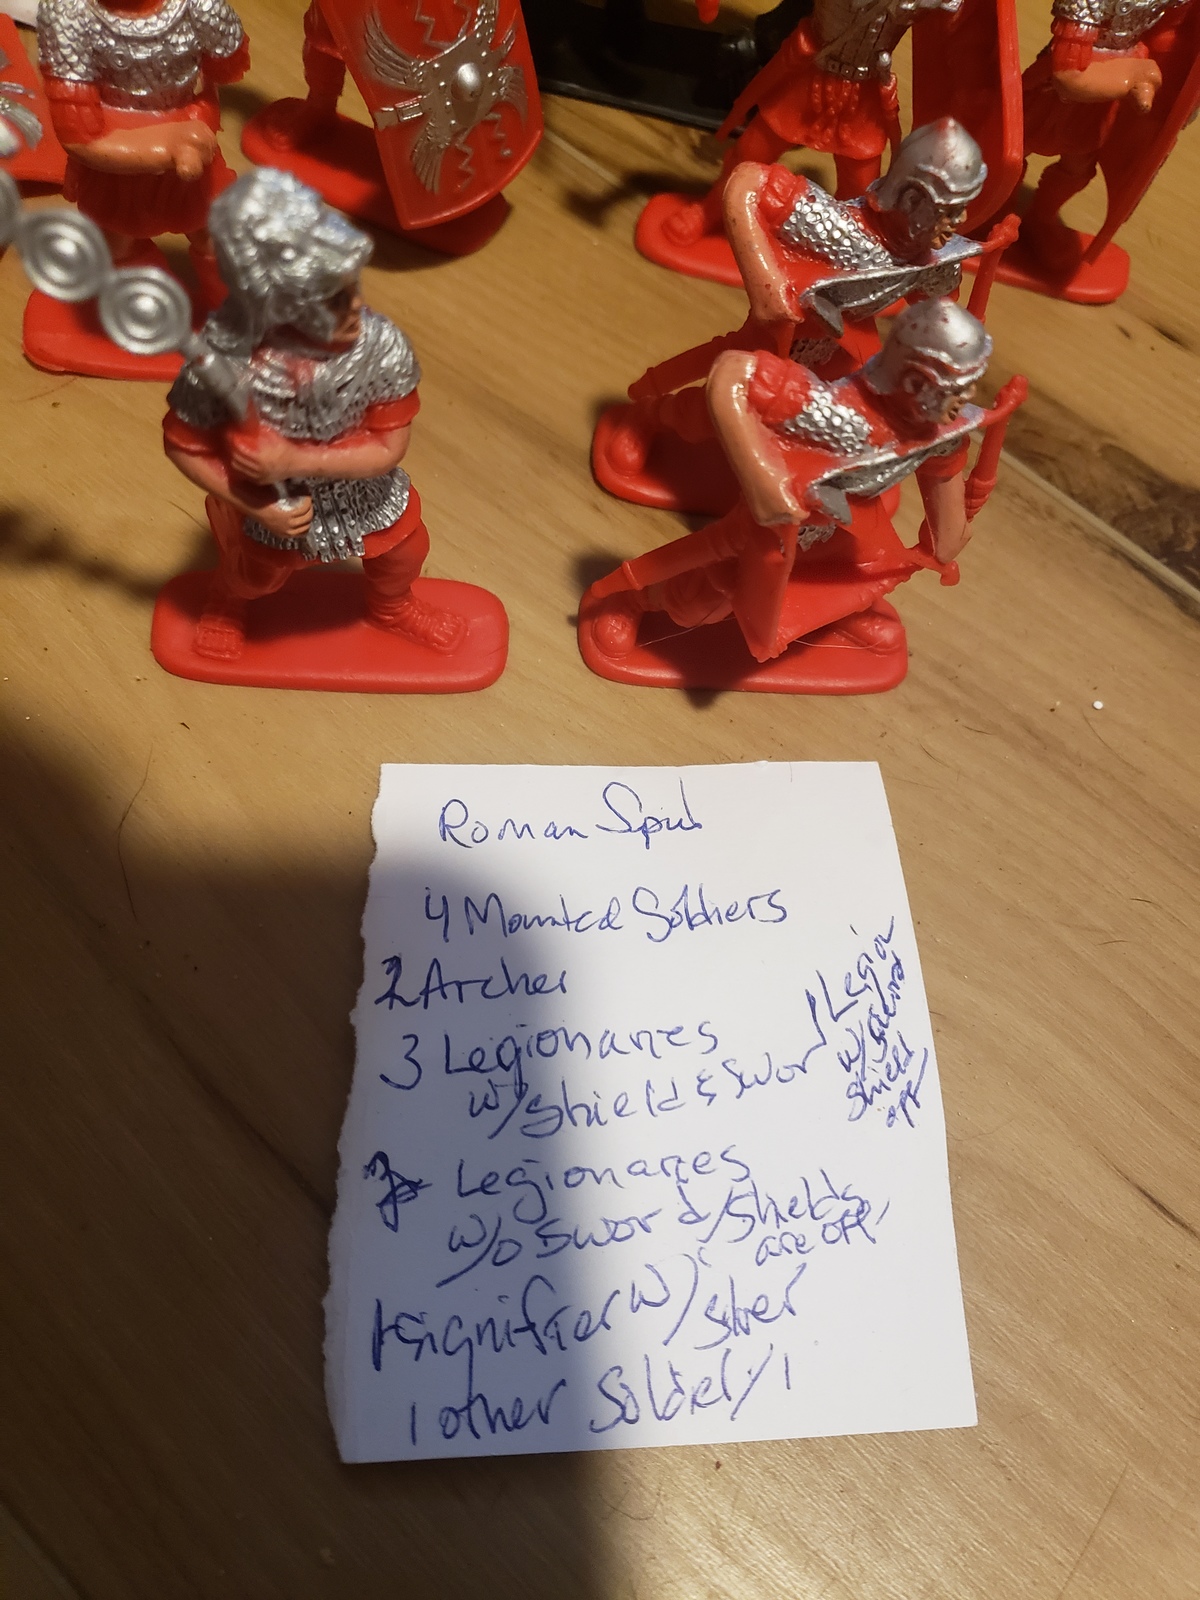 Roman
4 Mounted Soldiers
2 Archer
3 Legionaries
w/shield & swor
1 Legion
w/sword
shield
off
Legionaries
w/o sword/shields
are off
1 signifier w/
silver
1 other Soldier/1